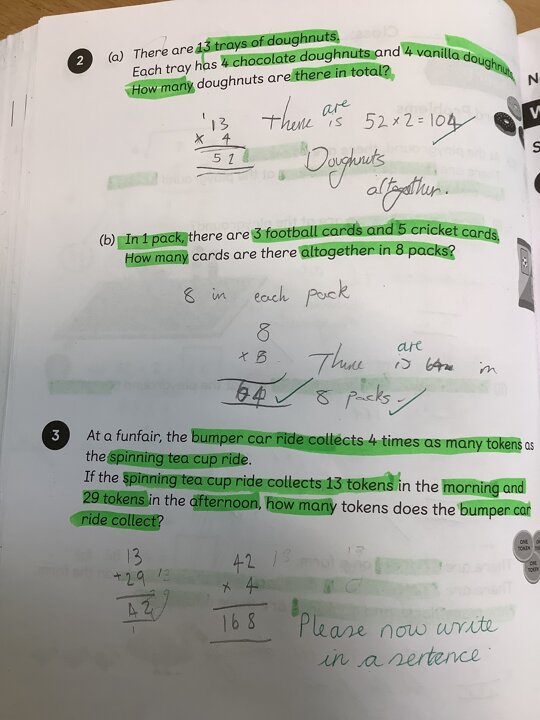 2 (a) There are 13 trays of doughnuts.
Each tray has 4 chocolate doughnuts and 4 vanilla doughnuts.
How many doughnuts are there in total?
13
× 4
52
There is 52 × 2 = 104
are
Doughnuts
altogether.
(b) In 1 pack, there are 3 football cards and 5 cricket cards.
How many cards are there altogether in 8 packs?
8 in each pack
8
× 8
64
There is in
are
8 packs.
3 At a funfair, the bumper car ride collects 4 times as many tokens as
the spinning tea cup ride.
If the spinning tea cup ride collects 13 tokens in the morning and
29 tokens in the afternoon, how many tokens does the bumper car
ride collect?
13
+29
42
1
42
× 4
168
Please now write
in a sentence
ONE
TOKEN
ONE
TOKEN